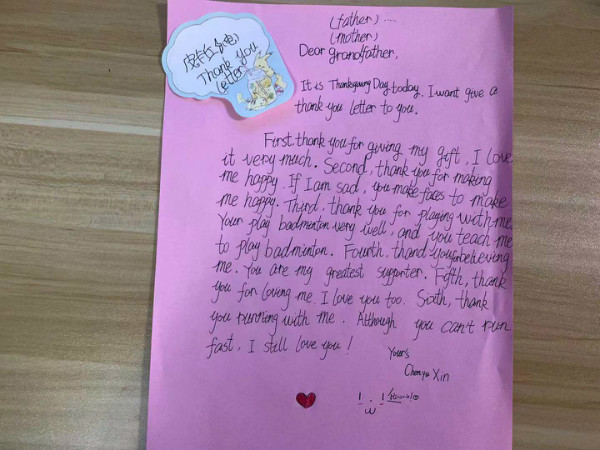 Thank you
letter
(father)....
(mother)
Dear grandfather,
It is Thanksgiving Day today. I want give a
thank you letter to you.
First, thank you for giving my gift, I love
it very much. Second, thank you for making
me happy. If I am sad, you make faces to make
me happy. Third, thank you for playing with me
Your play badminton very well, and you teach me
to play badminton. Fourth, thand you for believing
me. You are my greatest supporter. Fifth, thank
you for loving me. I love you too. Sixth, thank
you running with me. Although you can't run
fast, I still love you!
Yours
Xin